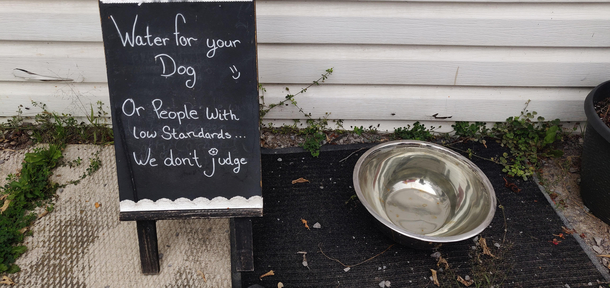 Water for your
Dog :)
Or People With
low Standards...
We don't judge